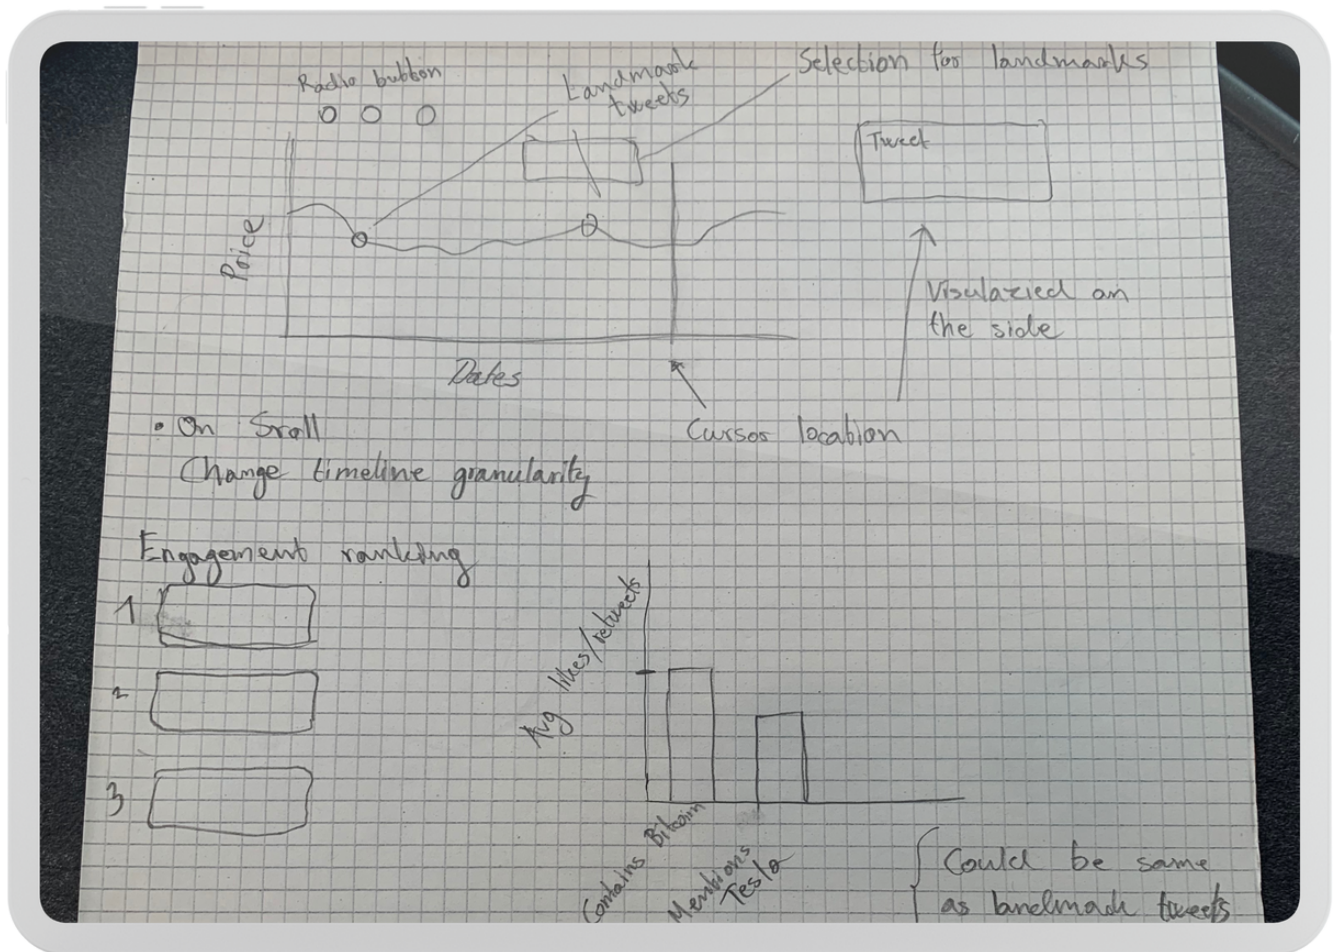 Radio button
Landmark
tweets
Selection for landmarks
Tweet
Price
Visulazied on
the side
Dates
Cursor location
• On Sroll
Change timeline granularity
Engagement ranking
1
2
3
Avg likes/retweets
Contains Bitcoin
Mentions
Tesla
Could be same
as landmark tweets